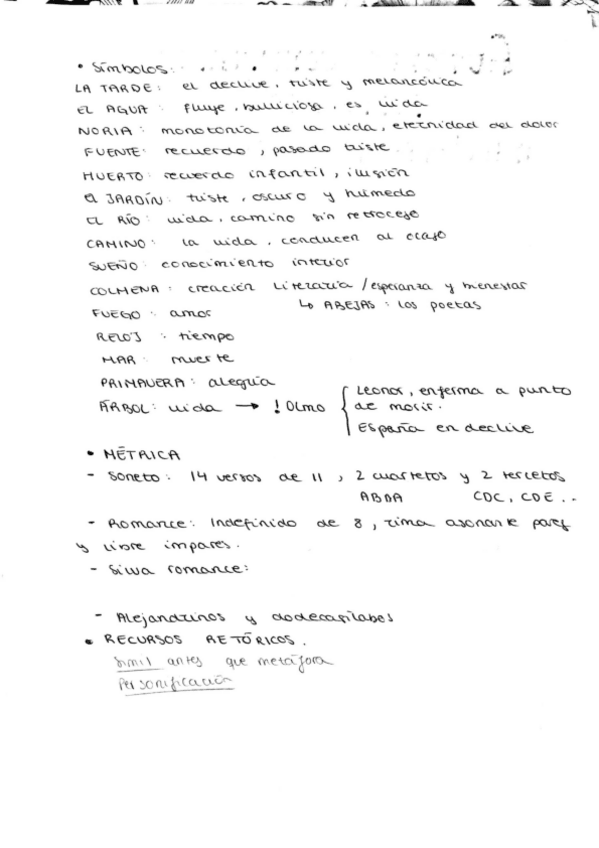 • Símbolos:
LA TARDE: el declive, triste y melancólica
EL AGUA: fluye, bulliciosa, es vida
NORIA: monotonía de la vida, eternidad del dolor
FUENTE: recuerdo, pasado triste
HUERTO: recuerdo infantil, ilusión
EL JARDÍN: triste, oscuro y húmedo
EL RÍO: vida, camino sin retroceso
CAMINO: la vida, conducen al ocaso
SUEÑO: conocimiento interior
COLMENA: creación literaria / esperanza y bienestar
↳ ABEJAS: los poetas
FUEGO: amor
RELOJ: tiempo
MAR: muerte
PRIMAVERA: alegría
ÁRBOL: vida → ! Olmo { Leonor, enferma a punto
de morir.
España en declive
• MÉTRICA
- Soneto: 14 versos de 11, 2 cuartetos y 2 tercetos
ABBA CDC, CDE..
- Romance: Indefinido de 8, rima asonante pares
y libre impares.
- Silva romance:
- Alejandrinos y dodecasílabos
• RECURSOS RETÓRICOS.
Símil antes que metáfora
Personificación